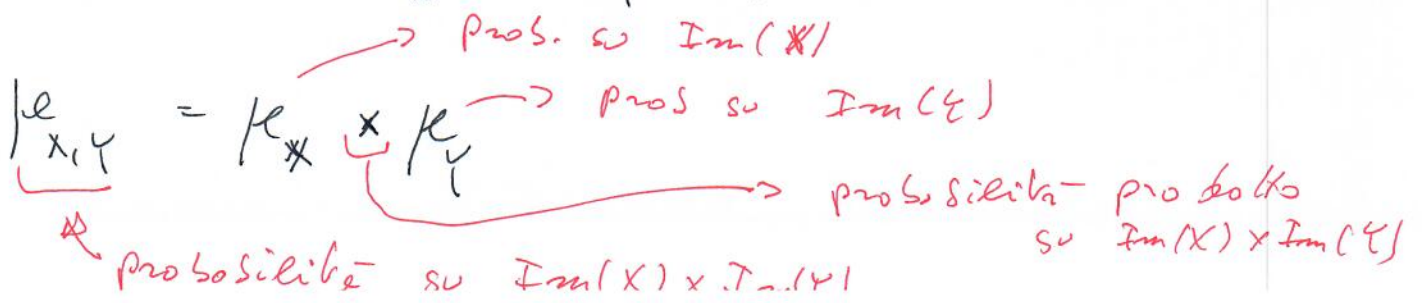 prob. su Im(X)
μ_{X,Y} = μ_X × μ_Y
prob su Im(Y)
probabilità prodotto
su Im(X) × Im(Y)
probabilità su Im(X) × Im(Y)